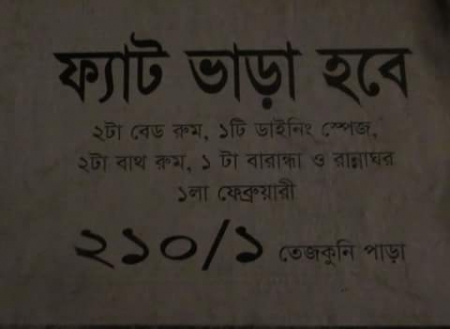 ফ্যাট ভাড়া হবে
২টা বেড রুম, ১টি ডাইনিং স্পেজ,
২টা বাথ রুম, ১ টা বারান্ধা ও রান্নাঘর
১লা ফেব্রুয়ারী
২১০/১ তেজকুনি পাড়া